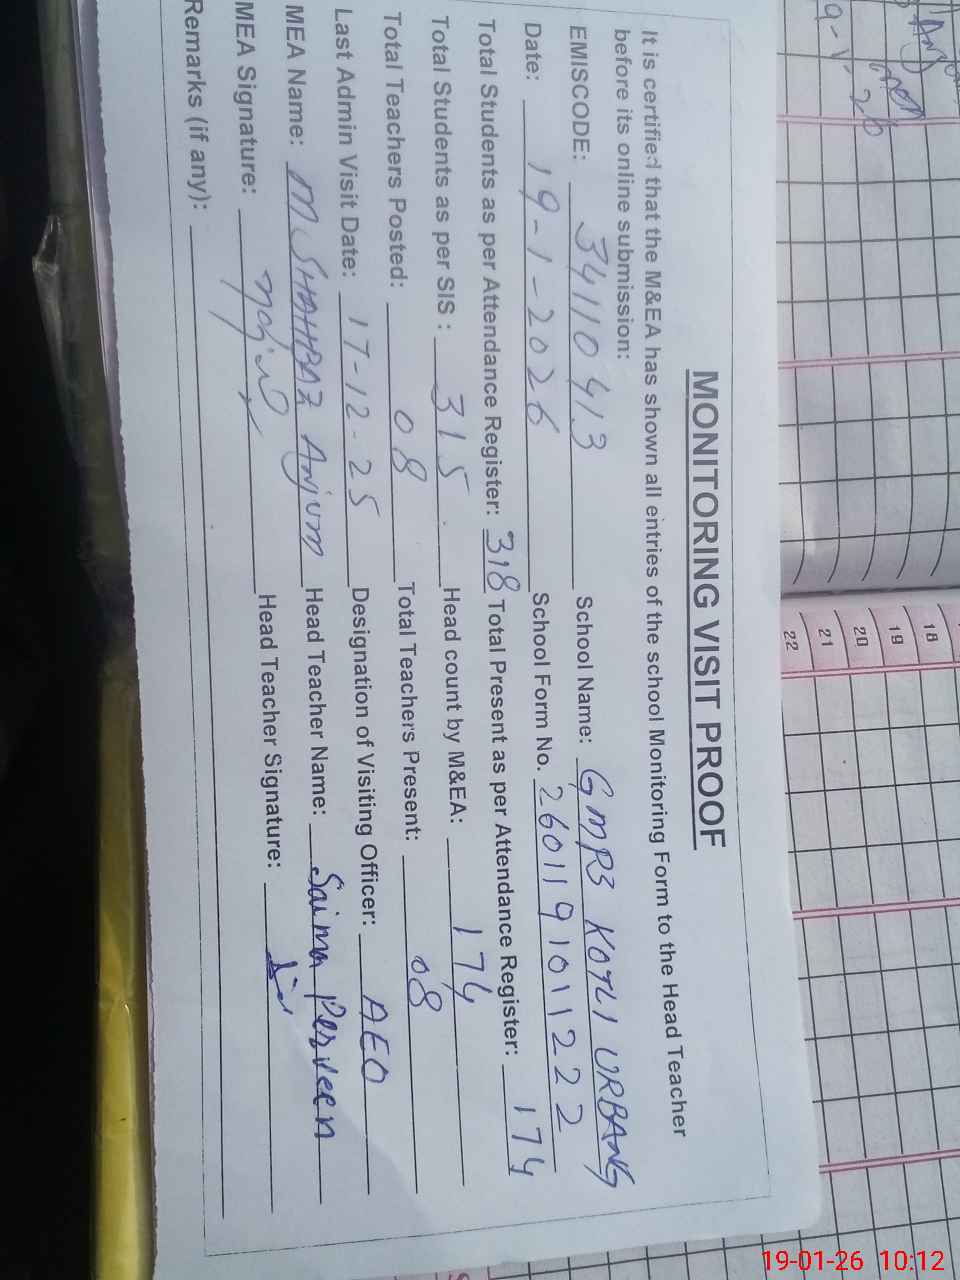 MONITORING VISIT PROOF
It is certified that the M&EA has shown all entries of the school Monitoring Form to the Head Teacher
before its online submission:
EMISCODE: 34110413 School Name: GMPS KOTLI URBANG
Date: 19-1-2026 School Form No. 2601191011222
Total Students as per Attendance Register: 318 Total Present as per Attendance Register: 174
Total Students as per SIS : 315 Head count by M&EA: 174
Total Teachers Posted: 08 Total Teachers Present: 08
Last Admin Visit Date: 17-12-25 Designation of Visiting Officer: AEO
MEA Name: M. SHAHBAZ Anjum Head Teacher Name: Saima Perveen
MEA Signature: Head Teacher Signature:
Remarks (if any):
18
19
20
21
22
19-01-26 10:12